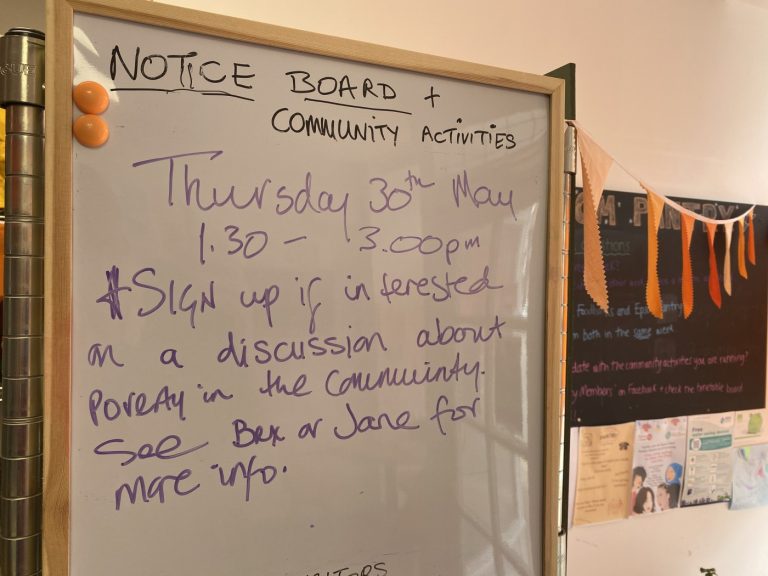 NOTICE BOARD +
COMMUNITY ACTIVITIES
Thursday 30th May
1.30 - 3.00pm
#SIGN up if interested
in a discussion about
poverty in the Communinty.
See Bex or Jane for
more info.
PANTRY
Foxhills and Epsom Pantry
in both in the same week
date with the community activities you are running?
Members' on Facebook + check the timetable board
Free